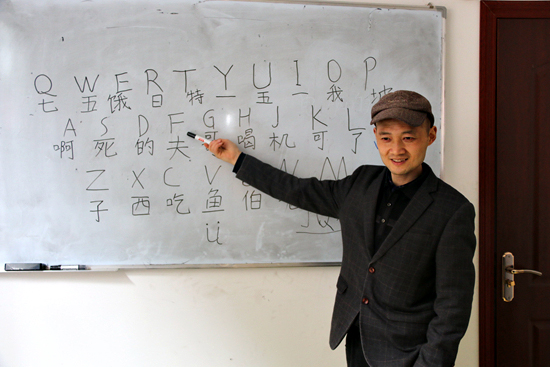 Q W E R T Y U I O P
七 五 饿 日 特 一 五 一 我 坡
A S D F G H J K L
啊 死 的 夫 哥 喝 机 可 了
Z X C V N M
子 西 吃 鱼 伯
ü